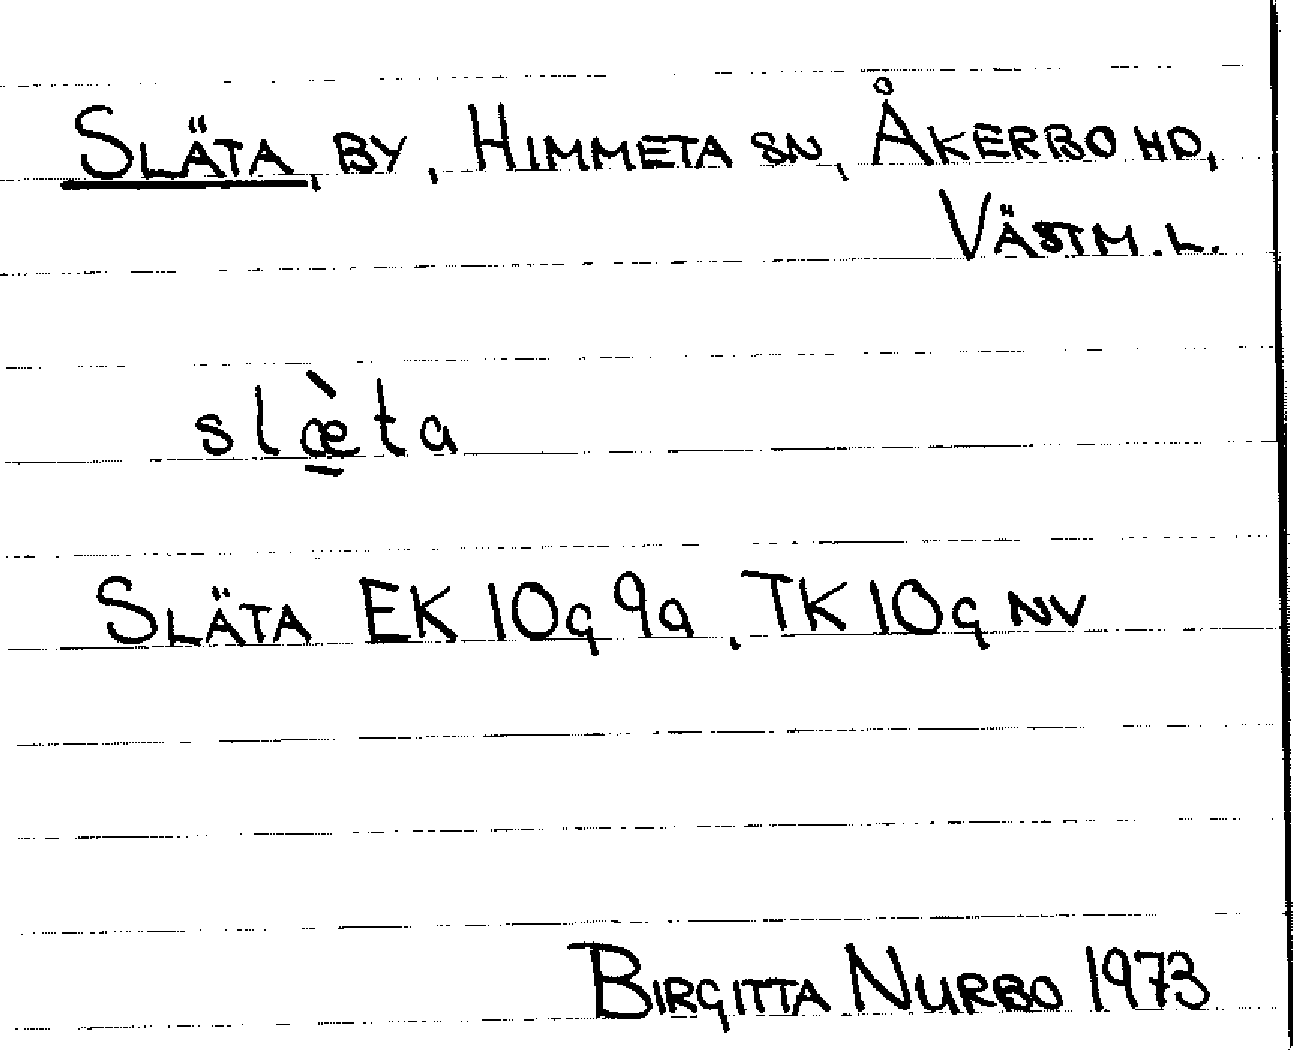 SLÄTA, BY, HIMMETA SN, ÅKERBO HD,
VÄSTM. L.
slæ̱̀ta
SLÄTA EK 10g 9a. TK 10g NV
BIRGITTA NURBO 1973